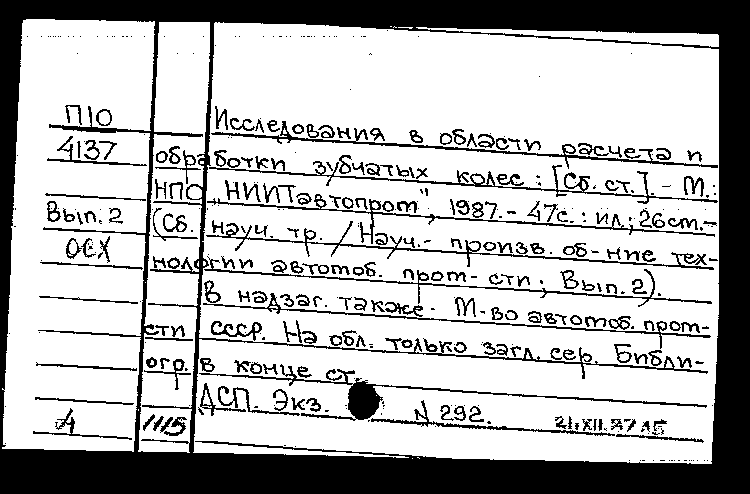 П10
4137
Вып. 2
ОСХ
Исследования в области расчета и
обработки зубчатых колес : [Сб. ст.]. - М.:
НПО „НИИТавтопром", 1987. - 47с. : ил.; 26см. -
(Сб. науч. тр. / Науч.- произв. об-ние тех-
нологии автомоб. пром-сти; Вып. 2).
В надзаг. также: М-во автомоб. пром-
сти СССР. На обл. только загл. сер. Библи-
огр. в конце ст.
ДСП. Экз. N 292.
А 1115